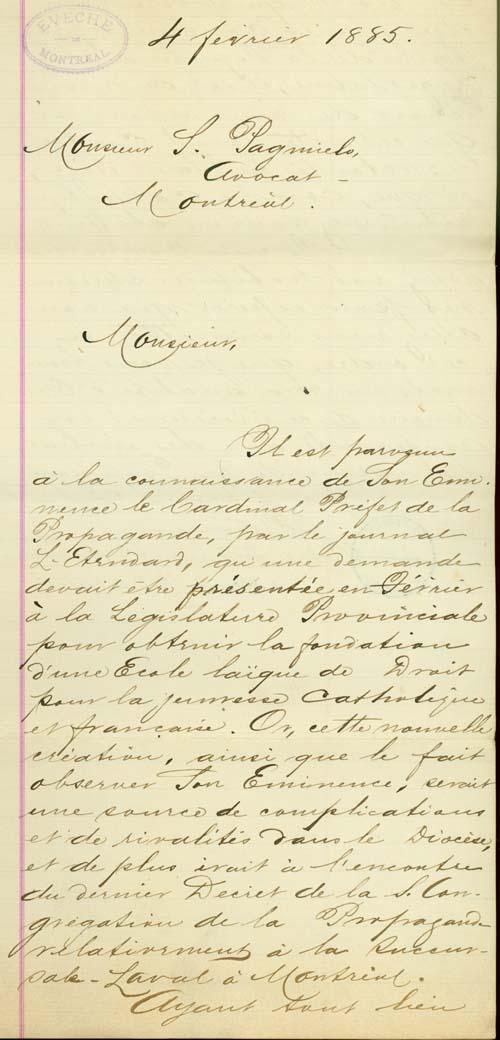 EVECHE
DE
MONTREAL
4 février 1885.
Monsieur S. Pagnuelo,
Avocat
Montréal.
Monsieur,
Il est parvenu
à la connaissance de Son Emi-
nence le Cardinal Préfet de la
Propagande, par le journal
L'Etendard, qu'une demande
devait être présentée en Février
à la Législature Provinciale
pour obtenir la fondation
d'une Ecole laïque de Droit
pour la jeunesse Catholique
et française. Or, cette nouvelle
création, ainsi que le fait
observer Son Eminence, serait
une source de complications
et de rivalités dans le Diocèse,
et de plus irait à l'encontre
du dernier Décret de la S. Con-
grégation de la Propagande
relativement à la succur-
sale-Laval à Montréal.
Ayant tout lieu